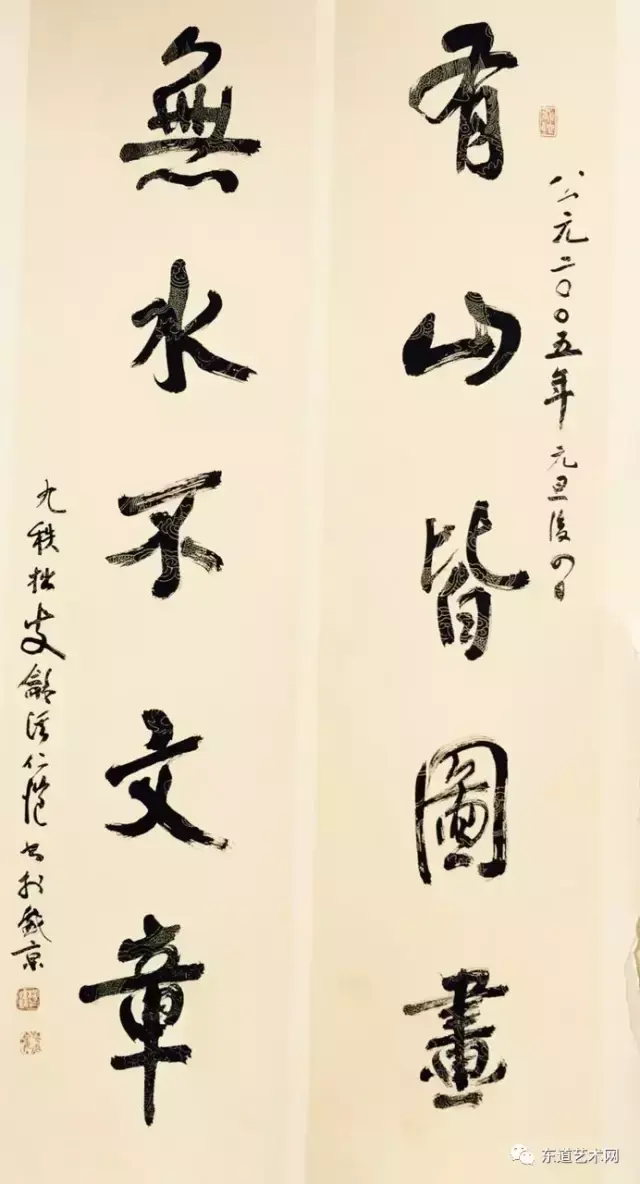 公元二〇〇五年元旦後四日
有山皆圖畫
無水不文章
九秩拙叟龢溪仁愷书於盛京
东道艺术网